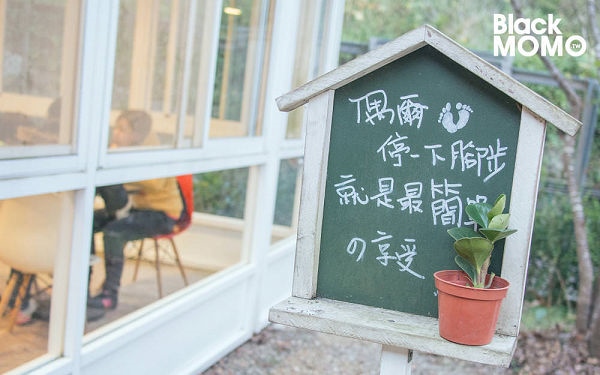 Black
MOMO TW
偶爾
停一下腳步
就是最簡單
の享受